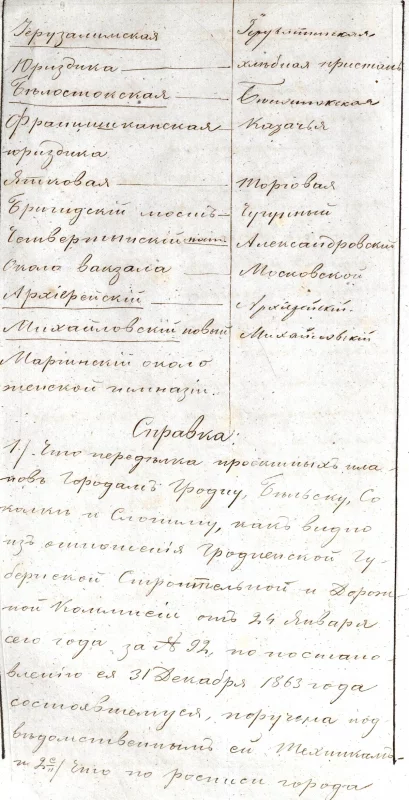 Іерузалимская — Іерузалимская
Юриздика — хлѣбная пристань
Бѣлостокская — Бѣлостокская
Францишканская — Казачья
юриздика
Ятковая — Торговая
Бригидскій мостъ — Чугунный
Четвертынскій — Александровскій
Около вакзала — Московской
Архіерейскій — Архіерейскій
Михайловскій новый — Михайловскій
Маріинскій около
женской гимназіи.
Справка:
1./ Что передѣлка прожитыхъ пла-
новъ городамъ Гродну, Бѣльску, Со
колки и Слониму, какъ видно
изъ отношенія Гродненской Гу-
бернской Строительной и Дорож-
ной Коммисіи отъ 24 Января
сего года за № 92, по постано-
вленію ея 31 Декабря 1863 года
состоявшемуся, поручена под-
вѣдомственнымъ ей Техникамъ
и 2е/ Что по росписи города